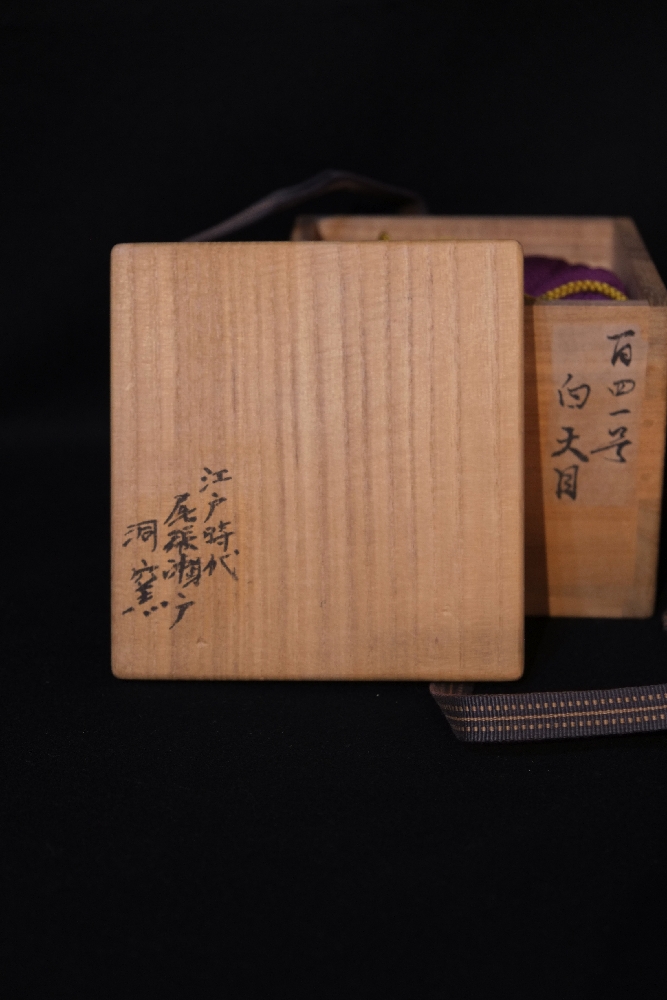 江戸時代
尾張瀬戸
洞窯
百四一号
白天目